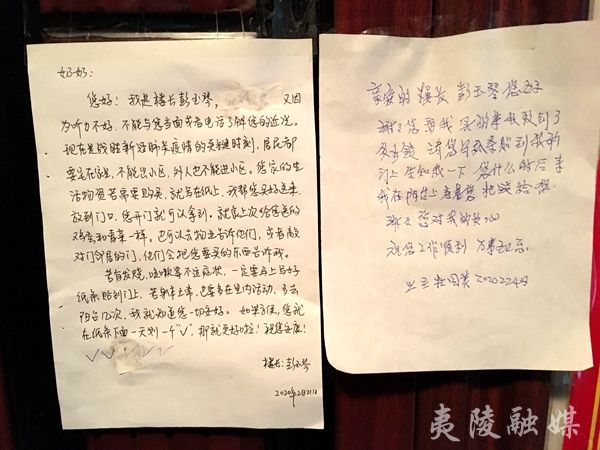 奶奶:
您好! 我是楼长彭玉琴, 又因
为听力不好,不能与您当面或者电话了解您的近况。
现在是战胜新冠肺炎疫情的关键时刻,居民都
要呆在家里,不能出小区,外人也不能进小区。您家的生
活物资若需要购买,就写在纸上,我帮您买好送来,
放到门口,您开门就可以拿到。就像上次给爸爸的
鸡蛋和青菜一样。也可以去物业告诉他们,或者敲
对门邻居的门,他们会把您要买的东西告诉我。
若有发烧、咳嗽等不适症状,一定要马上写好
纸条贴到门上。若
阳台
我就知道您一切安好。如果方便,您就
在纸条下面一天划一个“√”,那就更好啦!祝您健康!
√√√√√
楼长:彭玉琴
2020年2月21日
亲爱的楼长 彭玉琴您好
谢谢您帮我买的
多少钱 请您写张条贴到我的
门上告知我一下 您什么时候来
我在阳台上看着您 把钱给您
谢谢您对我的关心
祝您工作顺利 万事如意
业主
夷陵融媒